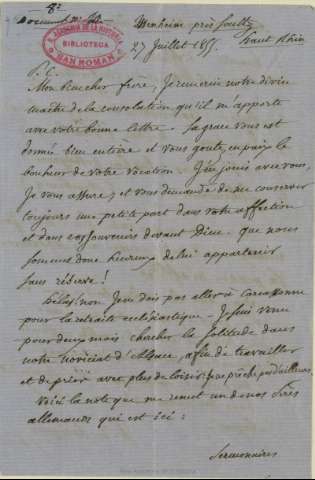 8º
Document nº
R. ACADEMIA DE LA HISTORIA
BIBLIOTECA
SAN ROMAN
près Soultz
Haut Rhin
27 Juillet 1855.
P. C.
Mon bien cher frère, Je remercie notre divin
maître de la consolation qu'il m'apporte
avec votre bonne lettre. Sa grace vous est
donnée bien entière et vous goutez en paix le
bonheur de votre vocation. J'en jouis avec vous,
Je vous assure, et vous demande de me conserver
toujours une petite part dans votre affection
et dans vos souvenirs devant Dieu. que nous
sommes donc heureux de lui appartenir
sans réserve!
Hélas! non Je ne dois pas aller à Carcassonne
pour la retraite ecclésiastique. Je suis venu
pour deux mois chercher la solitude dans
notre noviciat d'Alsace, afin de travailler
et de prier avec plus de loisir. Je ne prêche pas d'ailleurs.
Voici la note que me remet un de nos Pères
allemands qui est ici:
Sermonnaires